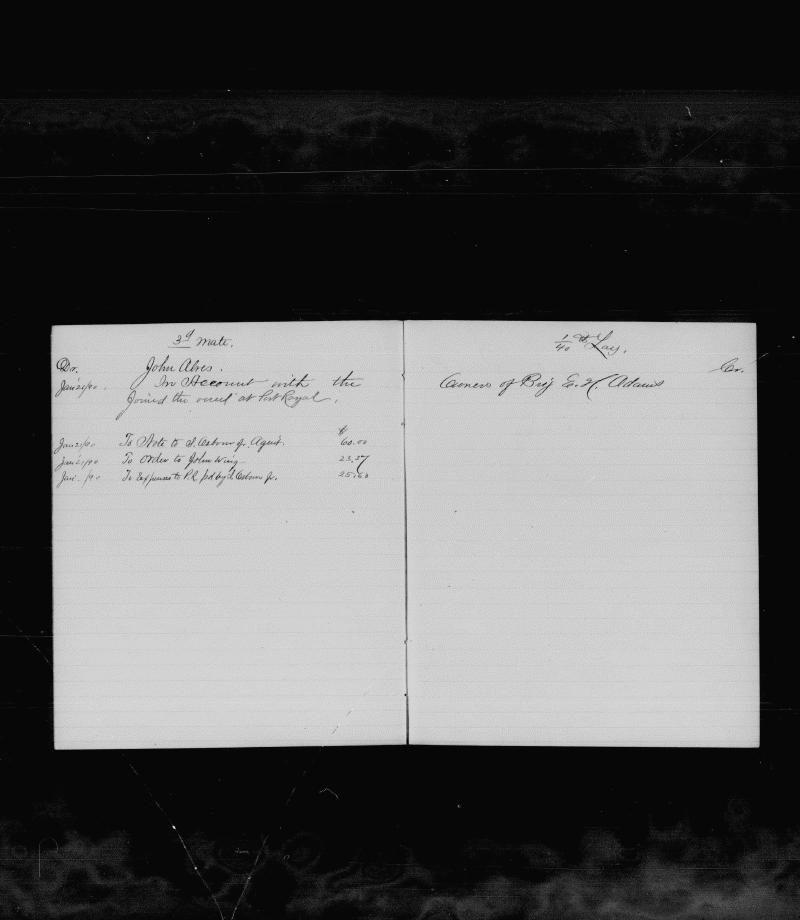 3d Mate.
Dr. John Alves.
Jan 21/90. In Account with the
Joined the vessel at Port Royal.
$
Jan 21/90 To Note to S. Osborn Jr. Agent. 60.00
Jan 21/90 To Order to John Wing 23.27
Jan /90 To Expenses to P.R. pd by S. Osborn Jr. 25.60
1/40th Lay.
Cr.
Owners of Brig E. H. Adams